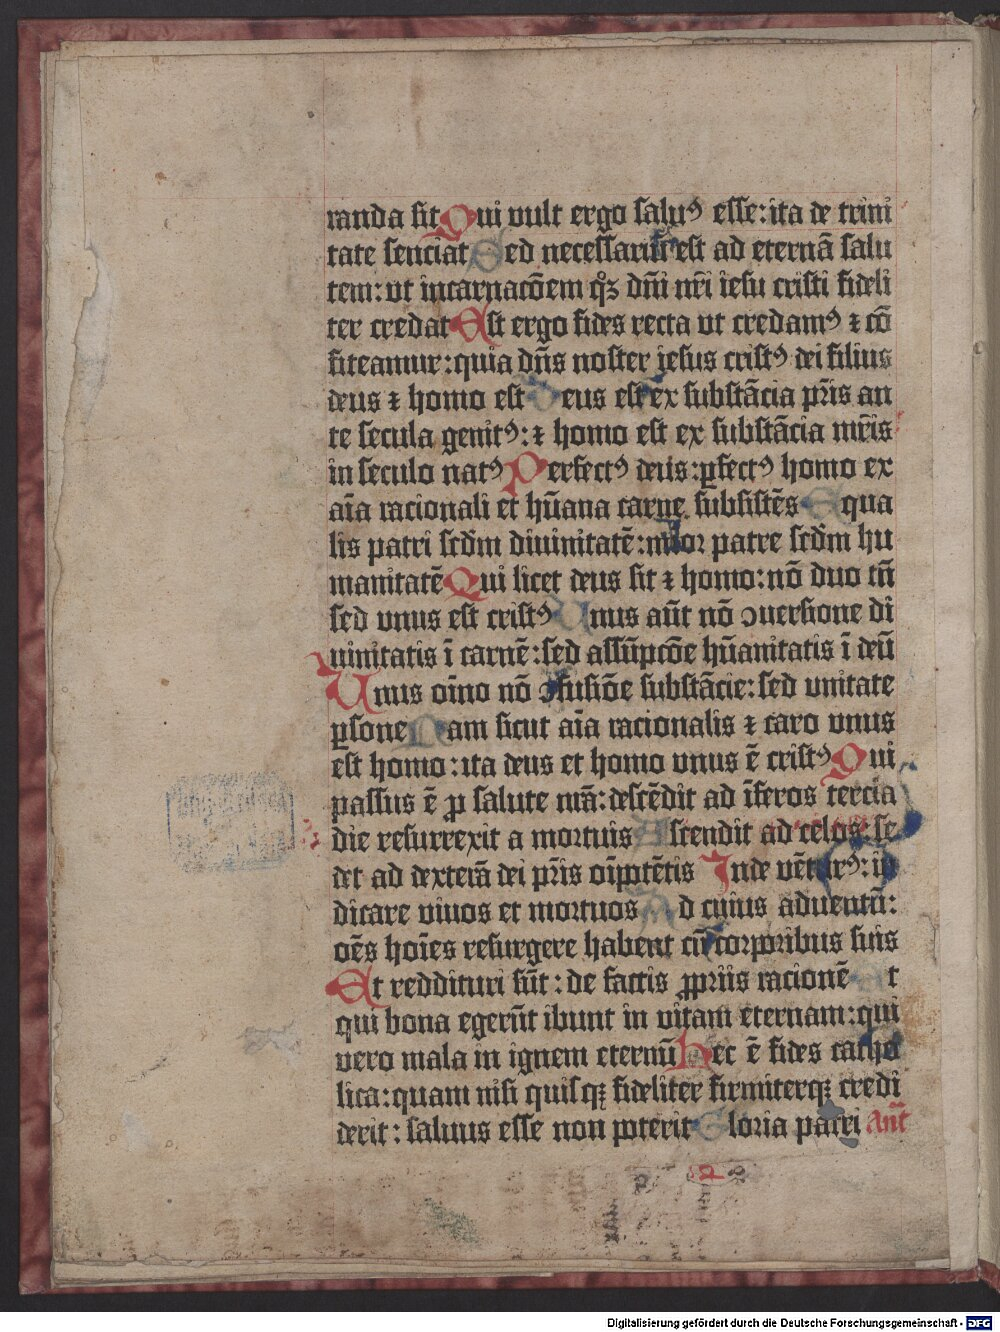 randa sit Qui vult ergo saluꝰ esse: ita de trini
tate senciat Sed necessariū est ad eternā salu
tem: vt incarnacōem qꝫ dn̄i nr̄i iesu cristi fideli
ter credat Est ergo fides recta vt credamꝰ ⁊ cō
fiteamur: quia dn̄s noster jesus cristꝰ dei filius
deus ⁊ homo est Deus est ex substācia pr̄is an
te secula genitꝰ: ⁊ homo est ex substācia mr̄is
in seculo natꝰ Perfectꝰ deus: ꝑfectꝰ homo ex
aīa racionali et hūana carne subsistēs Equa
lis patri scd̄m diuinitatē: mīor patre scd̄m hu
manitatē Qui licet deus sit ⁊ homo: nō duo tn̄
sed vnus est cristꝰ Unus aūt nō ꝯuersione di
uinitatis ī carnē: sed assūpcōe hūanitatis ī deū
Unus oīno nō ꝯfusiōe substācie: sed vnitate
ꝑsone Nam sicut aīa racionalis ⁊ caro vnus
est homo: ita deus et homo vnus ē cristꝰ Qui
passus ē ꝓ salute nr̄a: descēdit ad īferos tercia
die resurrexit a mortuis Ascendit ad celos: se
det ad dexterā dei pr̄is oīpotētis Inde vēturꝰ: iu
dicare viuos et mortuos Ad cuius aduentū:
oēs hoīes resurgere habent cū corporibus suis
Et reddituri sūt: de factis ꝓpriis racionē Et
qui bona egerūt ibunt in vitam eternam: qui
vero mala in ignem eternū Hec ē fides catho
lica: quam nisi quisqꝫ fideliter firmiterqꝫ credi
derit: saluus esse non poterit Gloria patri An̄t
Digitalisierung gefördert durch die Deutsche Forschungsgemeinschaft - DFG